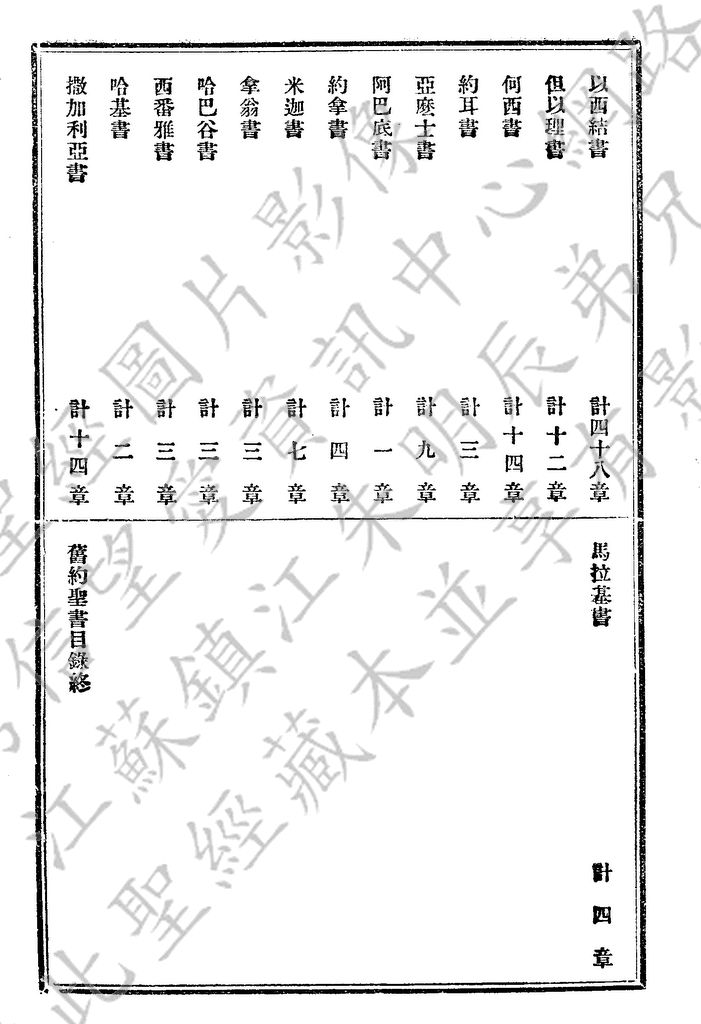 以西結書 計四十八章
但以理書 計十二章
何西書 計十四章
約耳書 計三章
亞麽士書 計九章
阿巴底書 計一章
約拿書 計四章
米迦書 計七章
拿翁書 計三章
哈巴谷書 計三章
西番雅書 計三章
哈基書 計二章
撒加利亞書 計十四章
馬拉基書 計四章
舊約聖書目錄終
聖經圖片影像
信望愛資訊中心網路
江蘇鎮江朱明辰弟兄
此聖經藏本並享有影